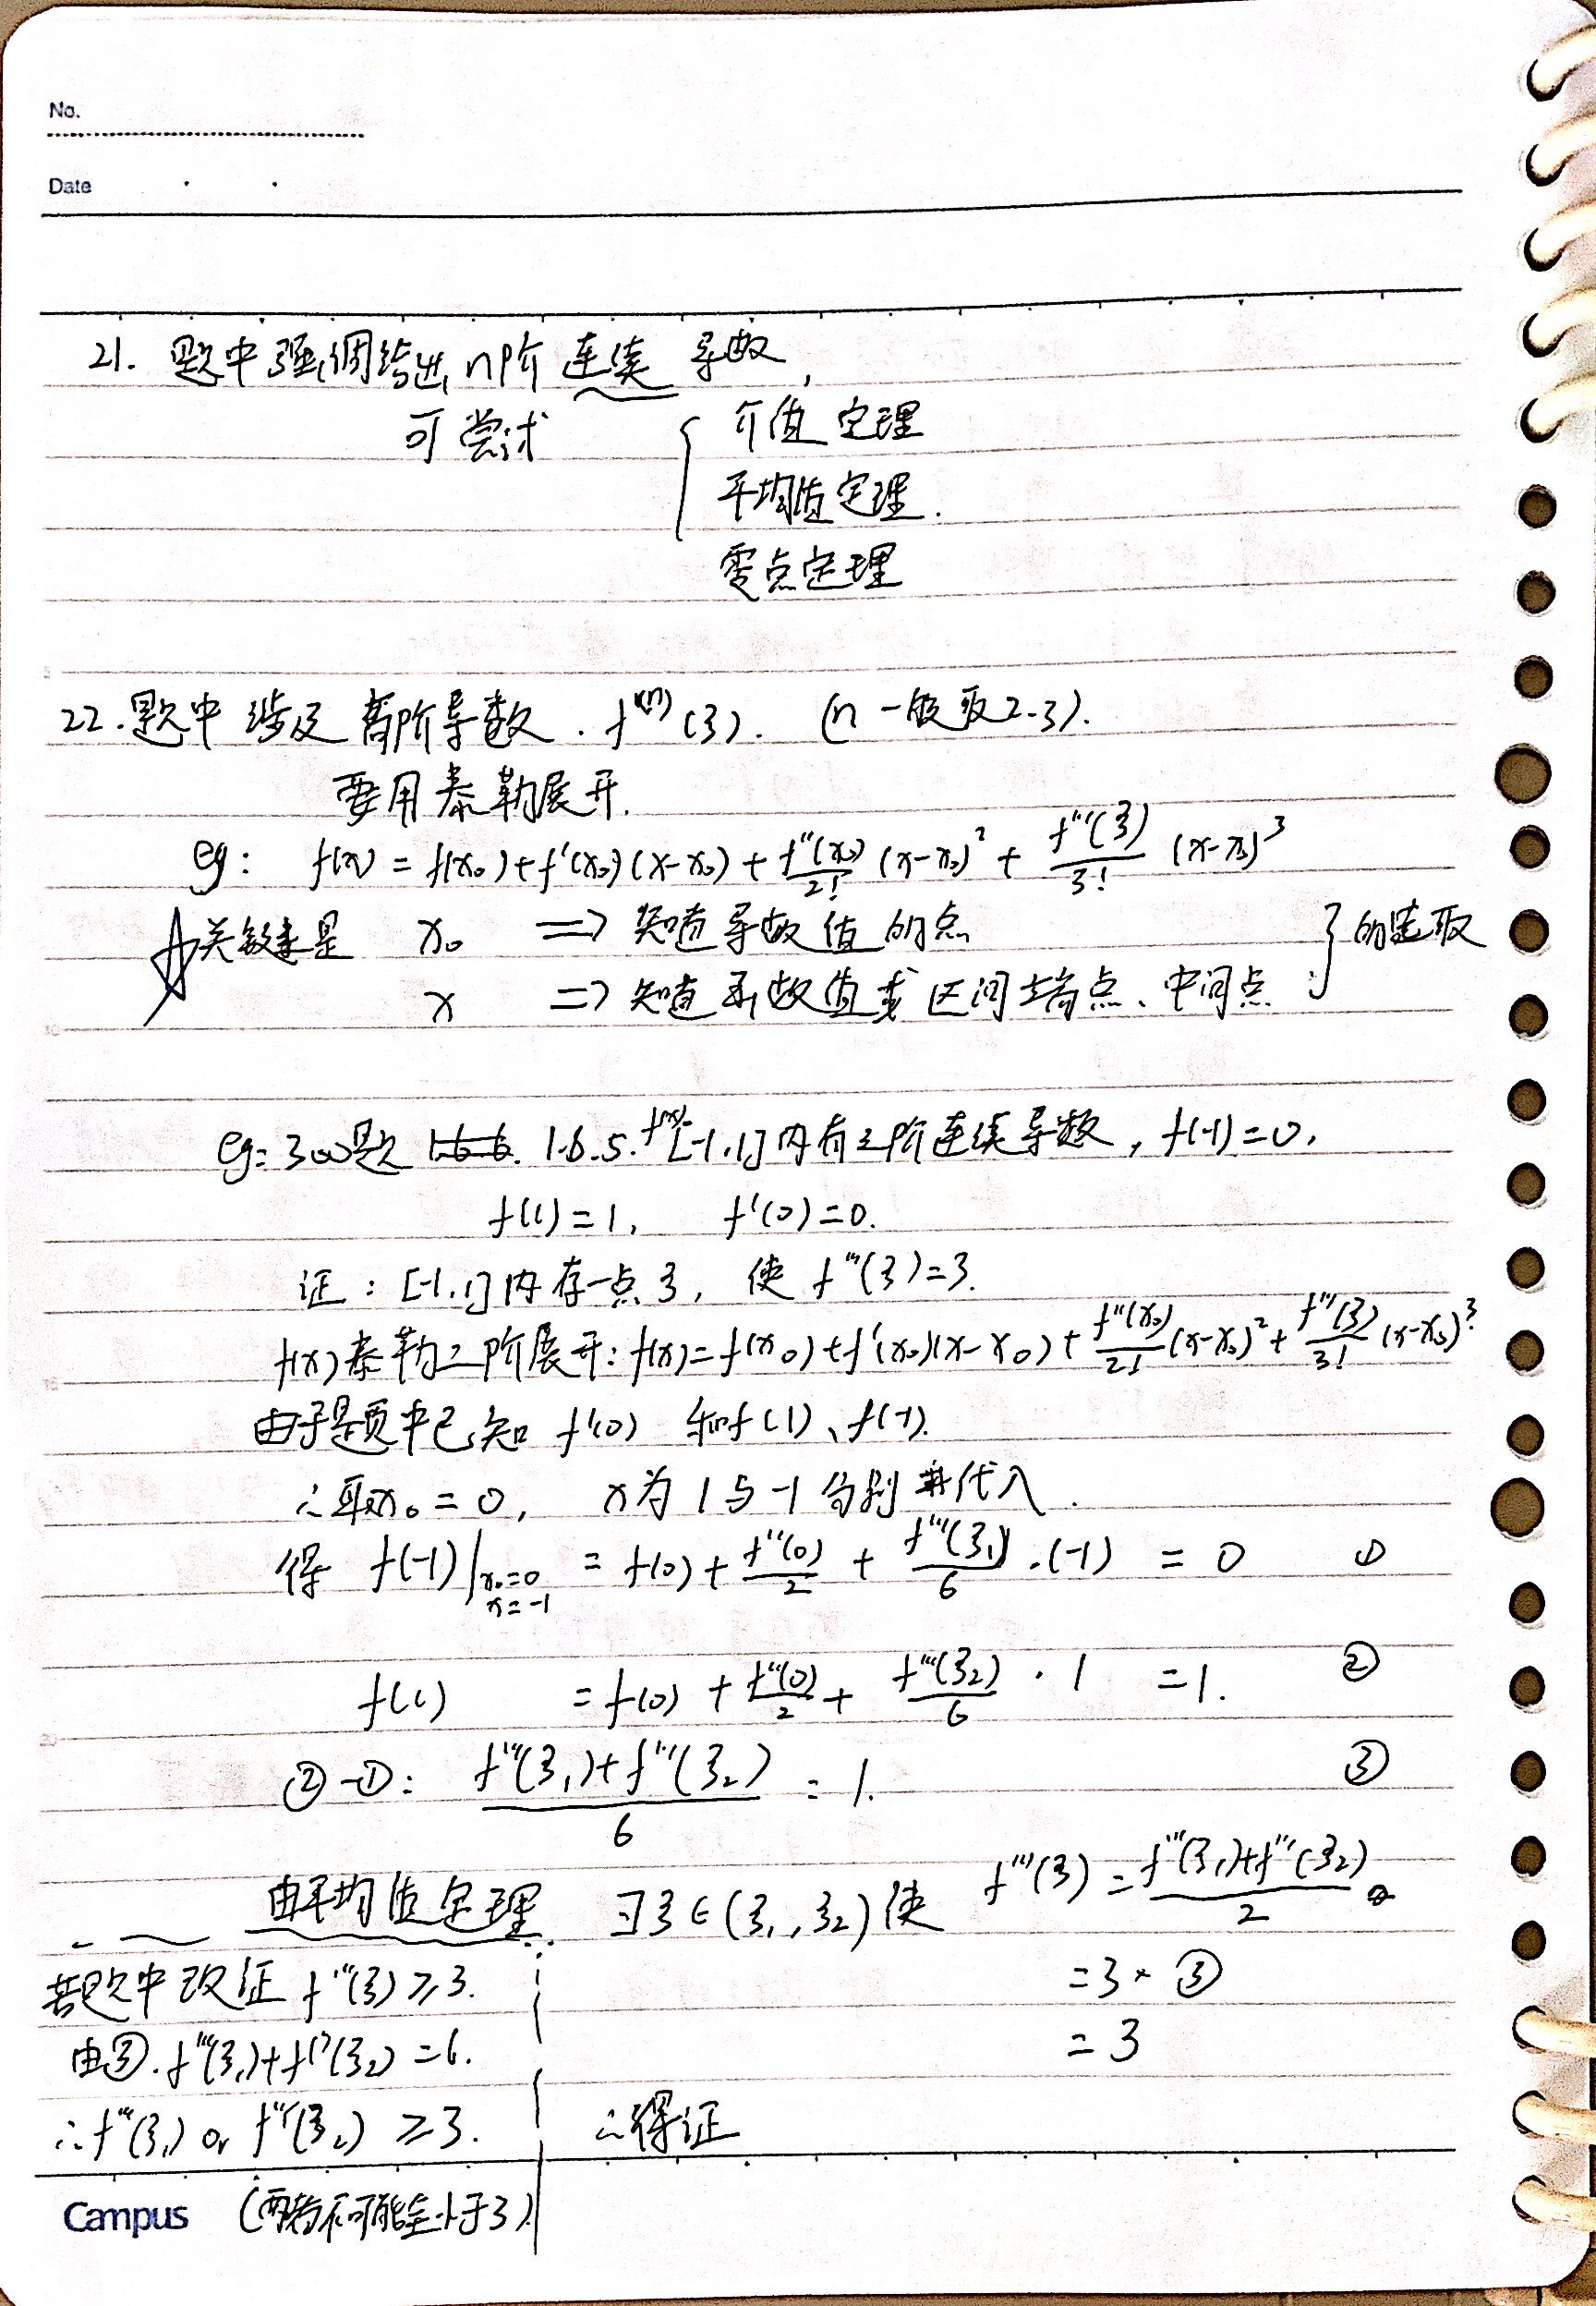 No.
Date
21. 题中强调给出n阶连续导数,
可尝试 { 介值定理
平均值定理.
零点定理
22. 题中涉及高阶导数. f⁽ⁿ⁾(ξ). (n一般取2.3).
要用泰勒展开.
eg: f(x) = f(x₀)+f'(x₀)(x-x₀)+f''(x₀)/2! (x-x₀)² + f'''(ξ)/3! (x-x₀)³
关键是 x₀ => 知道导数值的点
x => 知道函数值或区间端点、中间点 } 的选取
eg: 300题 1.6.5. f(x)[-1.1]内有三阶连续导数, f(-1)=0,
f(1)=1, f'(0)=0.
证: [-1.1]内存一点ξ, 使f'''(ξ)=3.
f(x)泰勒二阶展开: f(x)=f(x₀)+f'(x₀)(x-x₀)+f''(x₀)/2! (x-x₀)²+f'''(ξ)/3! (x-x₀)³
由于题中已知 f'(0) 和f(1)、f(-1).
∴取x₀=0, x为1与-1分别代入.
得 f(-1)|x₀=0 x=-1 = f(0)+f''(0)/2 + f'''(ξ₁)/6 ·(-1) = 0 ①
f(1) = f(0)+f''(0)/2+ f'''(ξ₂)/6 · 1 =1. ②
②-①: f'''(ξ₁)+f'''(ξ₂)/6 = 1. ③
由平均值定理 ∃ξ∈(ξ₁,ξ₂)使 f'''(ξ)=f'''(ξ₁)+f'''(ξ₂)/2
=3×③
=3
∴得证
若题中改证f'''(ξ)≥3.
由③.f'''(ξ₁)+f'''(ξ₂)=6.
∴f'''(ξ₁) or f'''(ξ₂) ≥3.
(两者不可能全小于3)
Campus